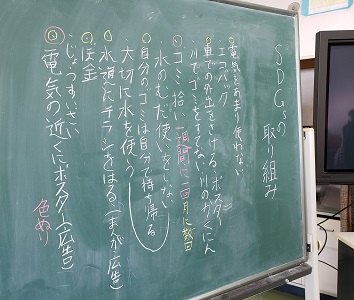 SDGsの取り組み
電気をあまり使わない
エコバック
車での外出をさける ポスター
川でゴミをすてない 川のかくにん
ゴミ拾い 一週間に一回 月に数回
水のむだ使いをしない
自分のゴミは自分で持ち帰る
大切に水を使う
水道にチラシをはる(まんが、広告)
ぼ金
じょうすいさい
電気の近くにポスター(広告)
色ぬり